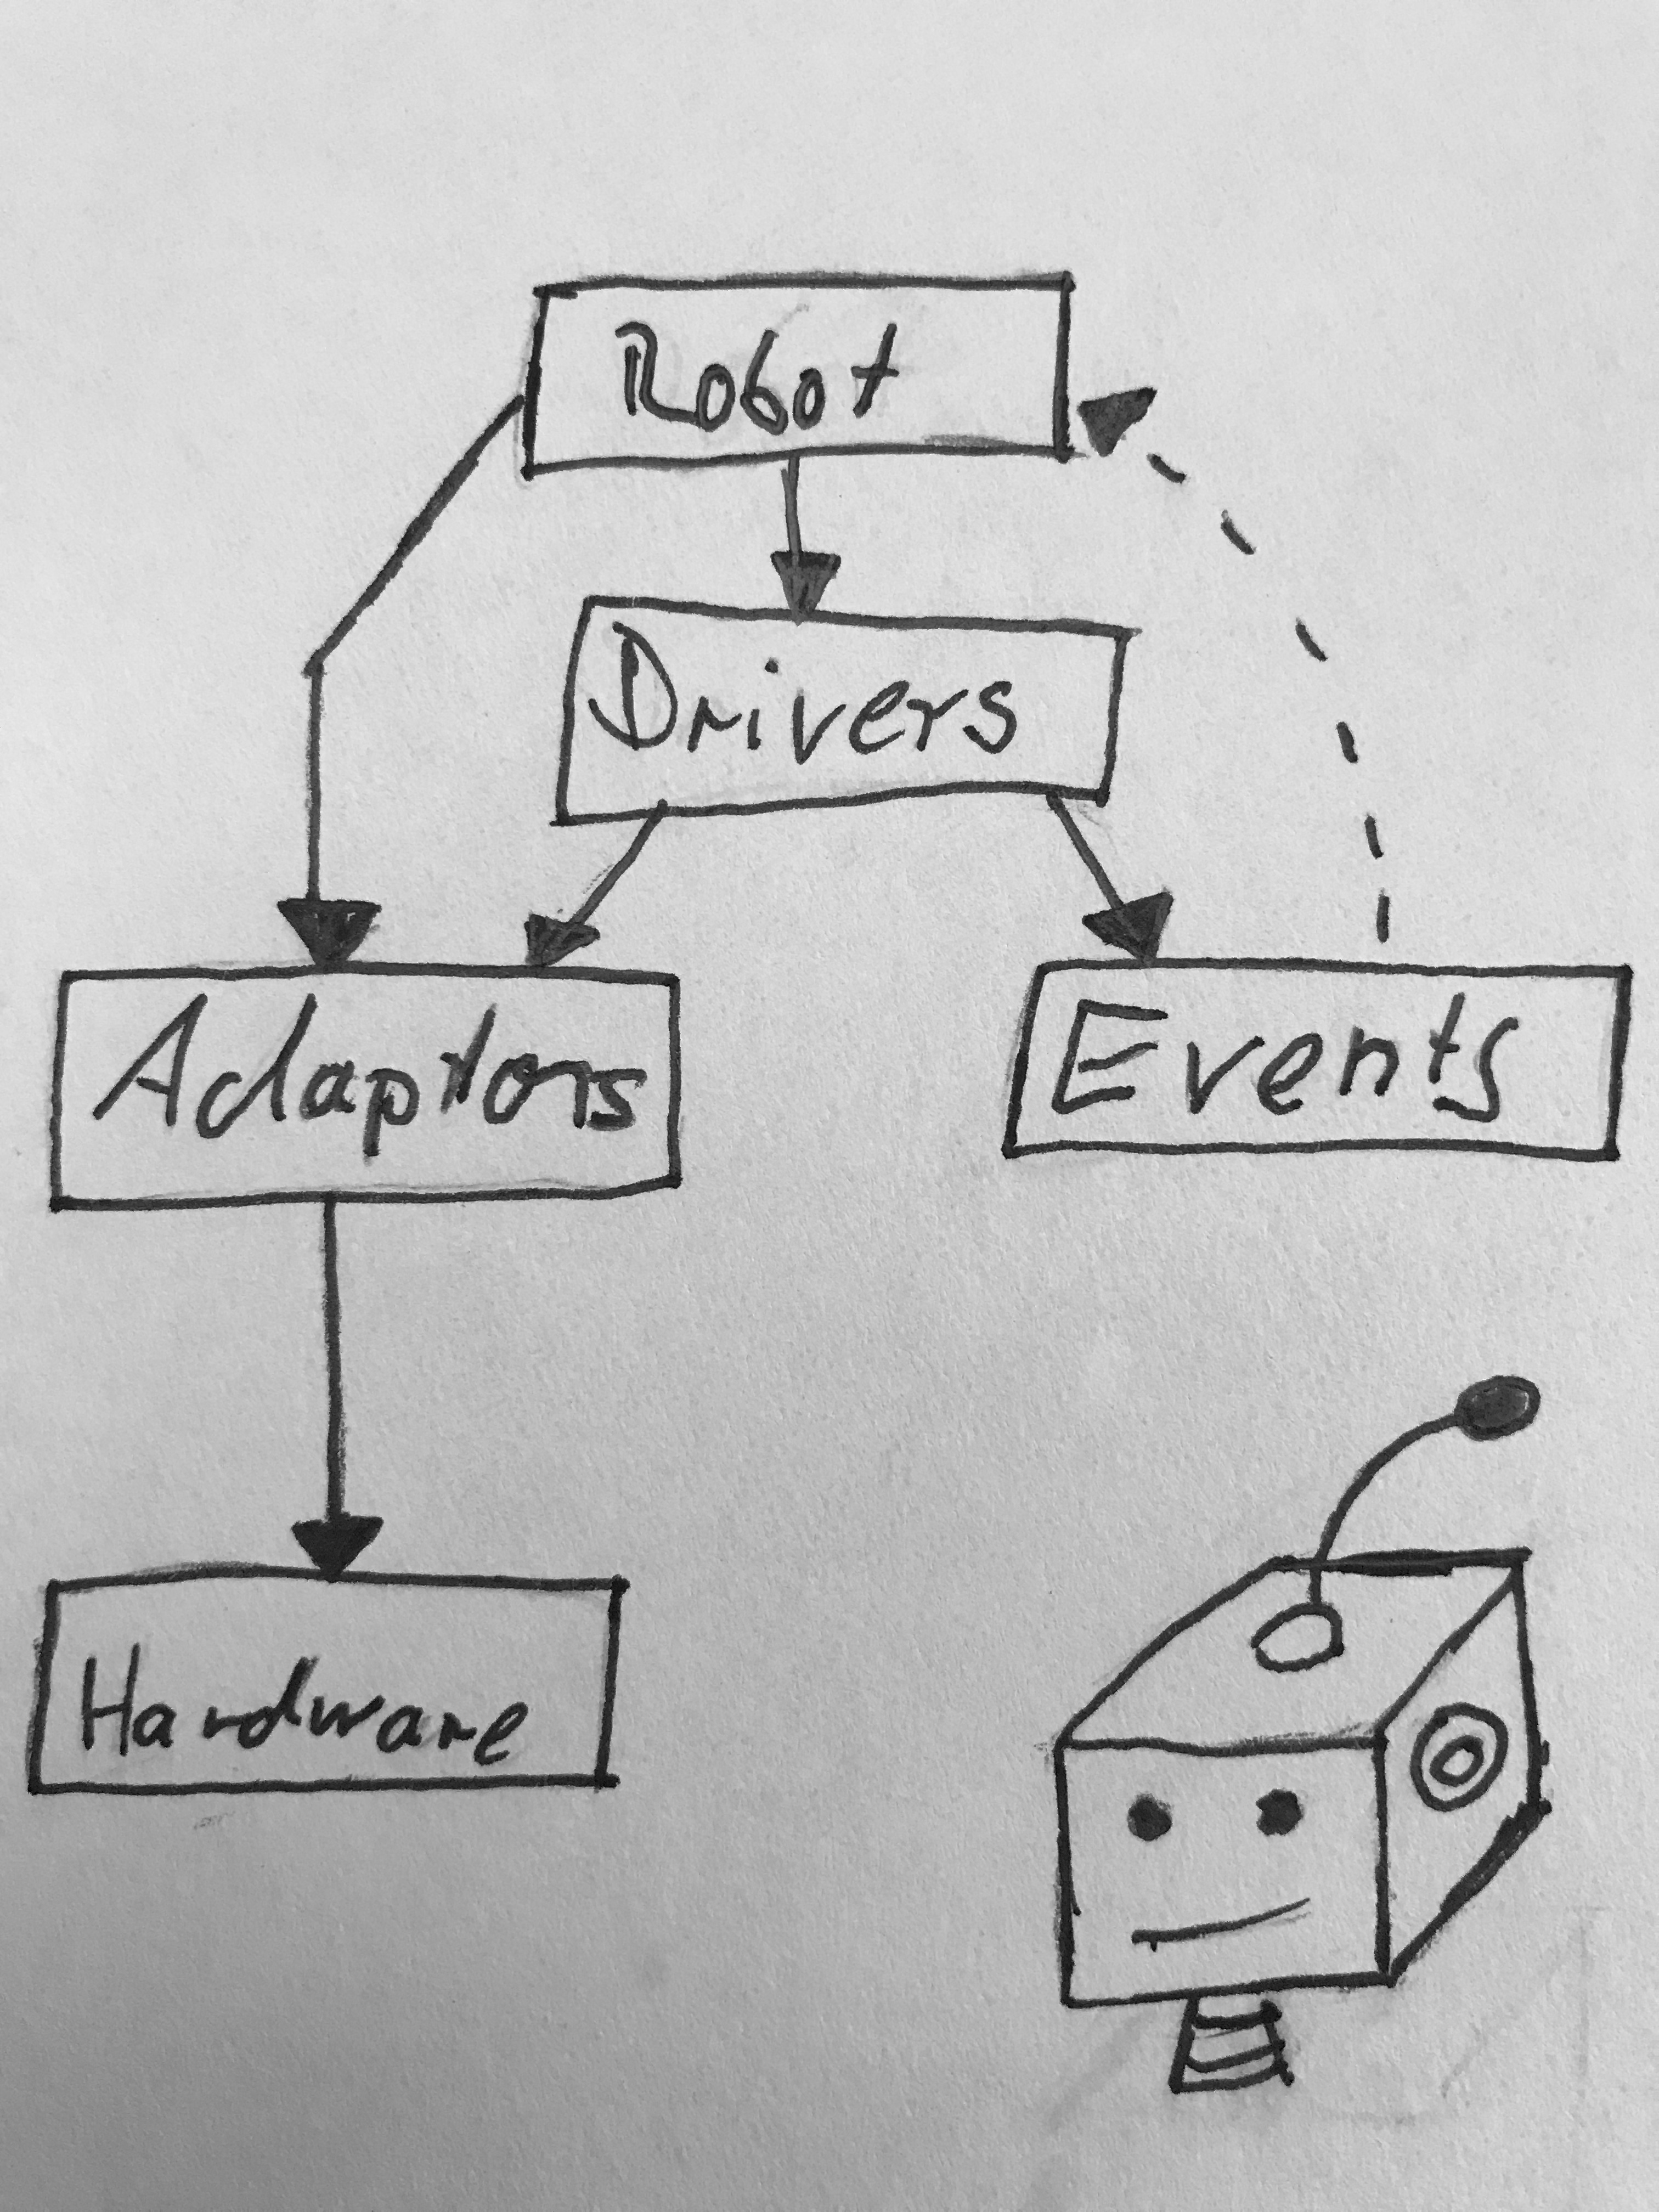 Robot
Drivers
Adaptors
Events
Hardware